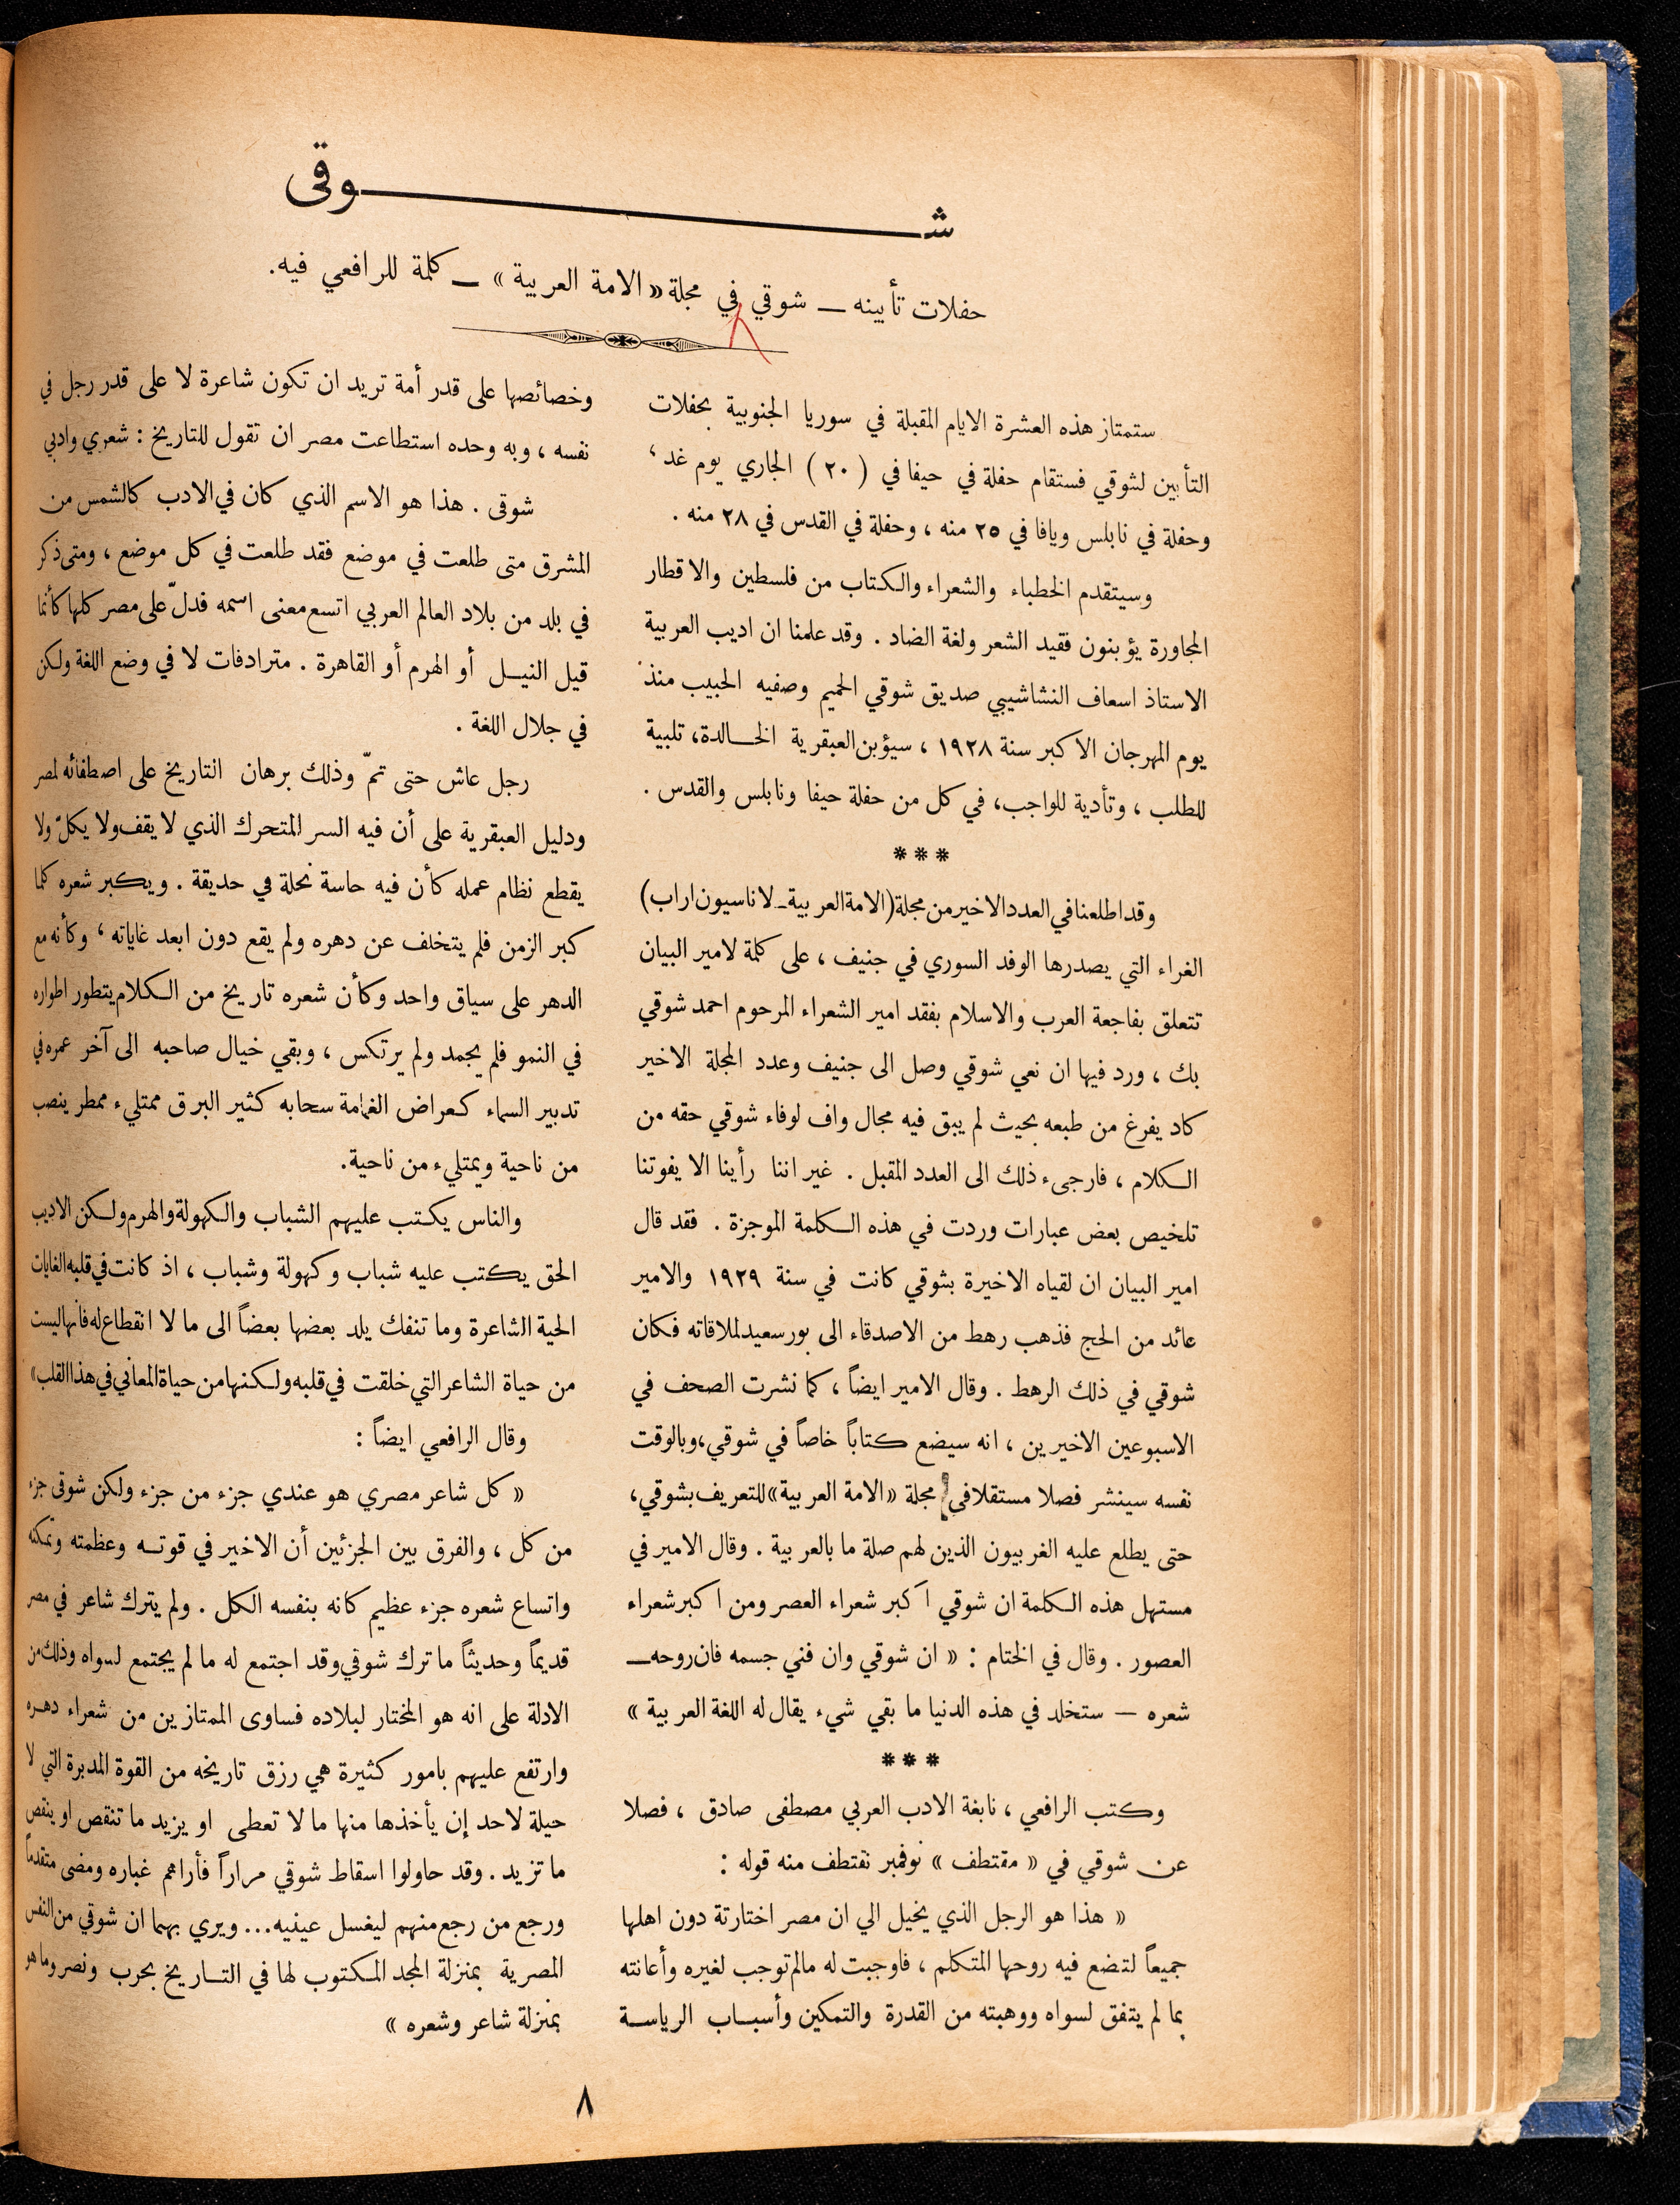 شوقى
حفلات تأبينه — شوقي في مجلة «الامة العربية» — كلمة للرافعي فيه.
ستمتاز هذه العشرة الايام المقبلة في سوريا الجنوبية بحفلات
التأبين لشوقي فستقام حفلة في حيفا في ( ٢٠ ) الجاري يوم غد ،
وحفلة في نابلس ويافا في ٢٥ منه ، وحفلة في القدس في ٢٨ منه .
وسيتقدم الخطباء والشعراء والكتاب من فلسطين والاقطار
المجاورة يؤبنون فقيد الشعر ولغة الضاد . وقد علمنا ان اديب العربية
الاستاذ اسعاف النشاشيبي صديق شوقي الحميم وصفيه الحبيب منذ
يوم المهرجان الاكبر سنة ١٩٢٨ ، سيؤبن العبقرية الخالدة، تلبية
للطلب ، وتأدية للواجب، في كل من حفلة حيفا ونابلس والقدس .
***
وقد اطلعنا في العدد الاخير من مجلة (الامة العربية ـ لاناسيون اراب)
الغراء التي يصدرها الوفد السوري في جنيف ، على كلمة لامير البيان
تتعلق بفاجعة العرب والاسلام بفقد امير الشعراء المرحوم احمد شوقي
بك ، ورد فيها ان نعي شوقي وصل الى جنيف وعدد المجلة الاخير
كاد يفرغ من طبعه بحيث لم يبق فيه مجال واف لوفاء شوقي حقه من
الكلام ، فارجىء ذلك الى العدد المقبل . غير اننا رأينا الا يفوتنا
تلخيص بعض عبارات وردت في هذه الكلمة الموجزة . فقد قال
امير البيان ان لقياه الاخيرة بشوقي كانت في سنة ١٩٢٩ والامير
عائد من الحج فذهب رهط من الاصدقاء الى بور سعيد لملاقاته فكان
شوقي في ذلك الرهط . وقال الامير ايضاً ، كما نشرت الصحف في
الاسبوعين الاخيرين ، انه سيضع كتاباً خاصاً في شوقي، وبالوقت
نفسه سينشر فصلا مستقلا في مجلة «الامة العربية» للتعريف بشوقي،
حتى يطلع عليه الغربيون الذين لهم صلة ما بالعربية . وقال الامير في
مستهل هذه الكلمة ان شوقي اكبر شعراء العصر ومن اكبر شعراء
العصور . وقال في الختام : « ان شوقي وان فني جسمه فان روحه —
شعره — ستخلد في هذه الدنيا ما بقي شيء يقال له اللغة العربية »
***
وكتب الرافعي ، نابغة الادب العربي مصطفى صادق ، فصلا
عن شوقي في « مقتطف » نوفمبر نقتطف منه قوله :
« هذا هو الرجل الذي يخيل الي ان مصر اختارتة دون اهلها
جميعاً لتضع فيه روحها المتكلم ، فاوجبت له مالم توجب لغيره وأعانته
بما لم يتفق لسواه ووهبته من القدرة والتمكين وأسباب الرياسة
وخصائصها على قدر أمة تريد ان تكون شاعرة لا على قدر رجل في
نفسه ، وبه وحده استطاعت مصر ان تقول للتاريخ : شعري وادبي
شوقى . هذا هو الاسم الذي كان في الادب كالشمس من
المشرق متى طلعت في موضع فقد طلعت في كل موضع ، ومتى ذكر
في بلد من بلاد العالم العربي اتسع معنى اسمه فدلّ على مصر كلها كأنما
قيل النيل أو الهرم أو القاهرة . مترادفات لا في وضع اللغة ولكن
في جلال اللغة .
رجل عاش حتى تمّ وذلك برهان التاريخ على اصطفائه لمصر
ودليل العبقرية على أن فيه السر المتحرك الذي لا يقف ولا يكلّ ولا
يقطع نظام عمله كأن فيه حاسة نحلة في حديقة . ويكبر شعره كلما
كبر الزمن فلم يتخلف عن دهره ولم يقع دون ابعد غاياته ، وكأنه مع
الدهر على سياق واحد وكأن شعره تاريخ من الكلام يتطور اطواره
في النمو فلم يجمد ولم يرتكس ، وبقي خيال صاحبه الى آخر عمره في
تدبير السماء كعراض الغمامة سحابه كثير البرق ممتليء ممطر ينصب
من ناحية ويمتليء من ناحية.
والناس يكتب عليهم الشباب والكهولة والهرم ولكن الاديب
الحق يكتب عليه شباب وكهولة وشباب ، اذ كانت في قلبه الغايات
الحية الشاعرة وما تنفك يلد بعضها بعضاً الى ما لا انقطاع له فانها ليست
من حياة الشاعر التي خلقت في قلبه ولكنها من حياة المعاني في هذا القلب»
وقال الرافعي ايضاً :
« كل شاعر مصري هو عندي جزء من جزء ولكن شوقى جزء
من كل ، والفرق بين الجزئين أن الاخير في قوته وعظمته وتمكنه
واتساع شعره جزء عظيم كانه بنفسه الكل . ولم يترك شاعر في مصر
قديماً وحديثاً ما ترك شوقي وقد اجتمع له ما لم يجتمع لسواه وذلك من
الادلة على انه هو المختار لبلاده فساوى الممتازين من شعراء دهره
وارتفع عليهم بامور كثيرة هي رزق تاريخه من القوة المدبرة التي لا
حيلة لاحد إن يأخذها منها ما لا تعطى او يزيد ما تنقص او ينقص
ما تزيد . وقد حاولوا اسقاط شوقي مراراً فأراهم غباره ومضى متقدماً
ورجع من رجع منهم ليغسل عينيه... ويري بهما ان شوقي من النفس
المصرية بمنزلة المجد المكتوب لها في التاريخ بحرب ونصر وما هو
بمنزلة شاعر وشعره »
٨